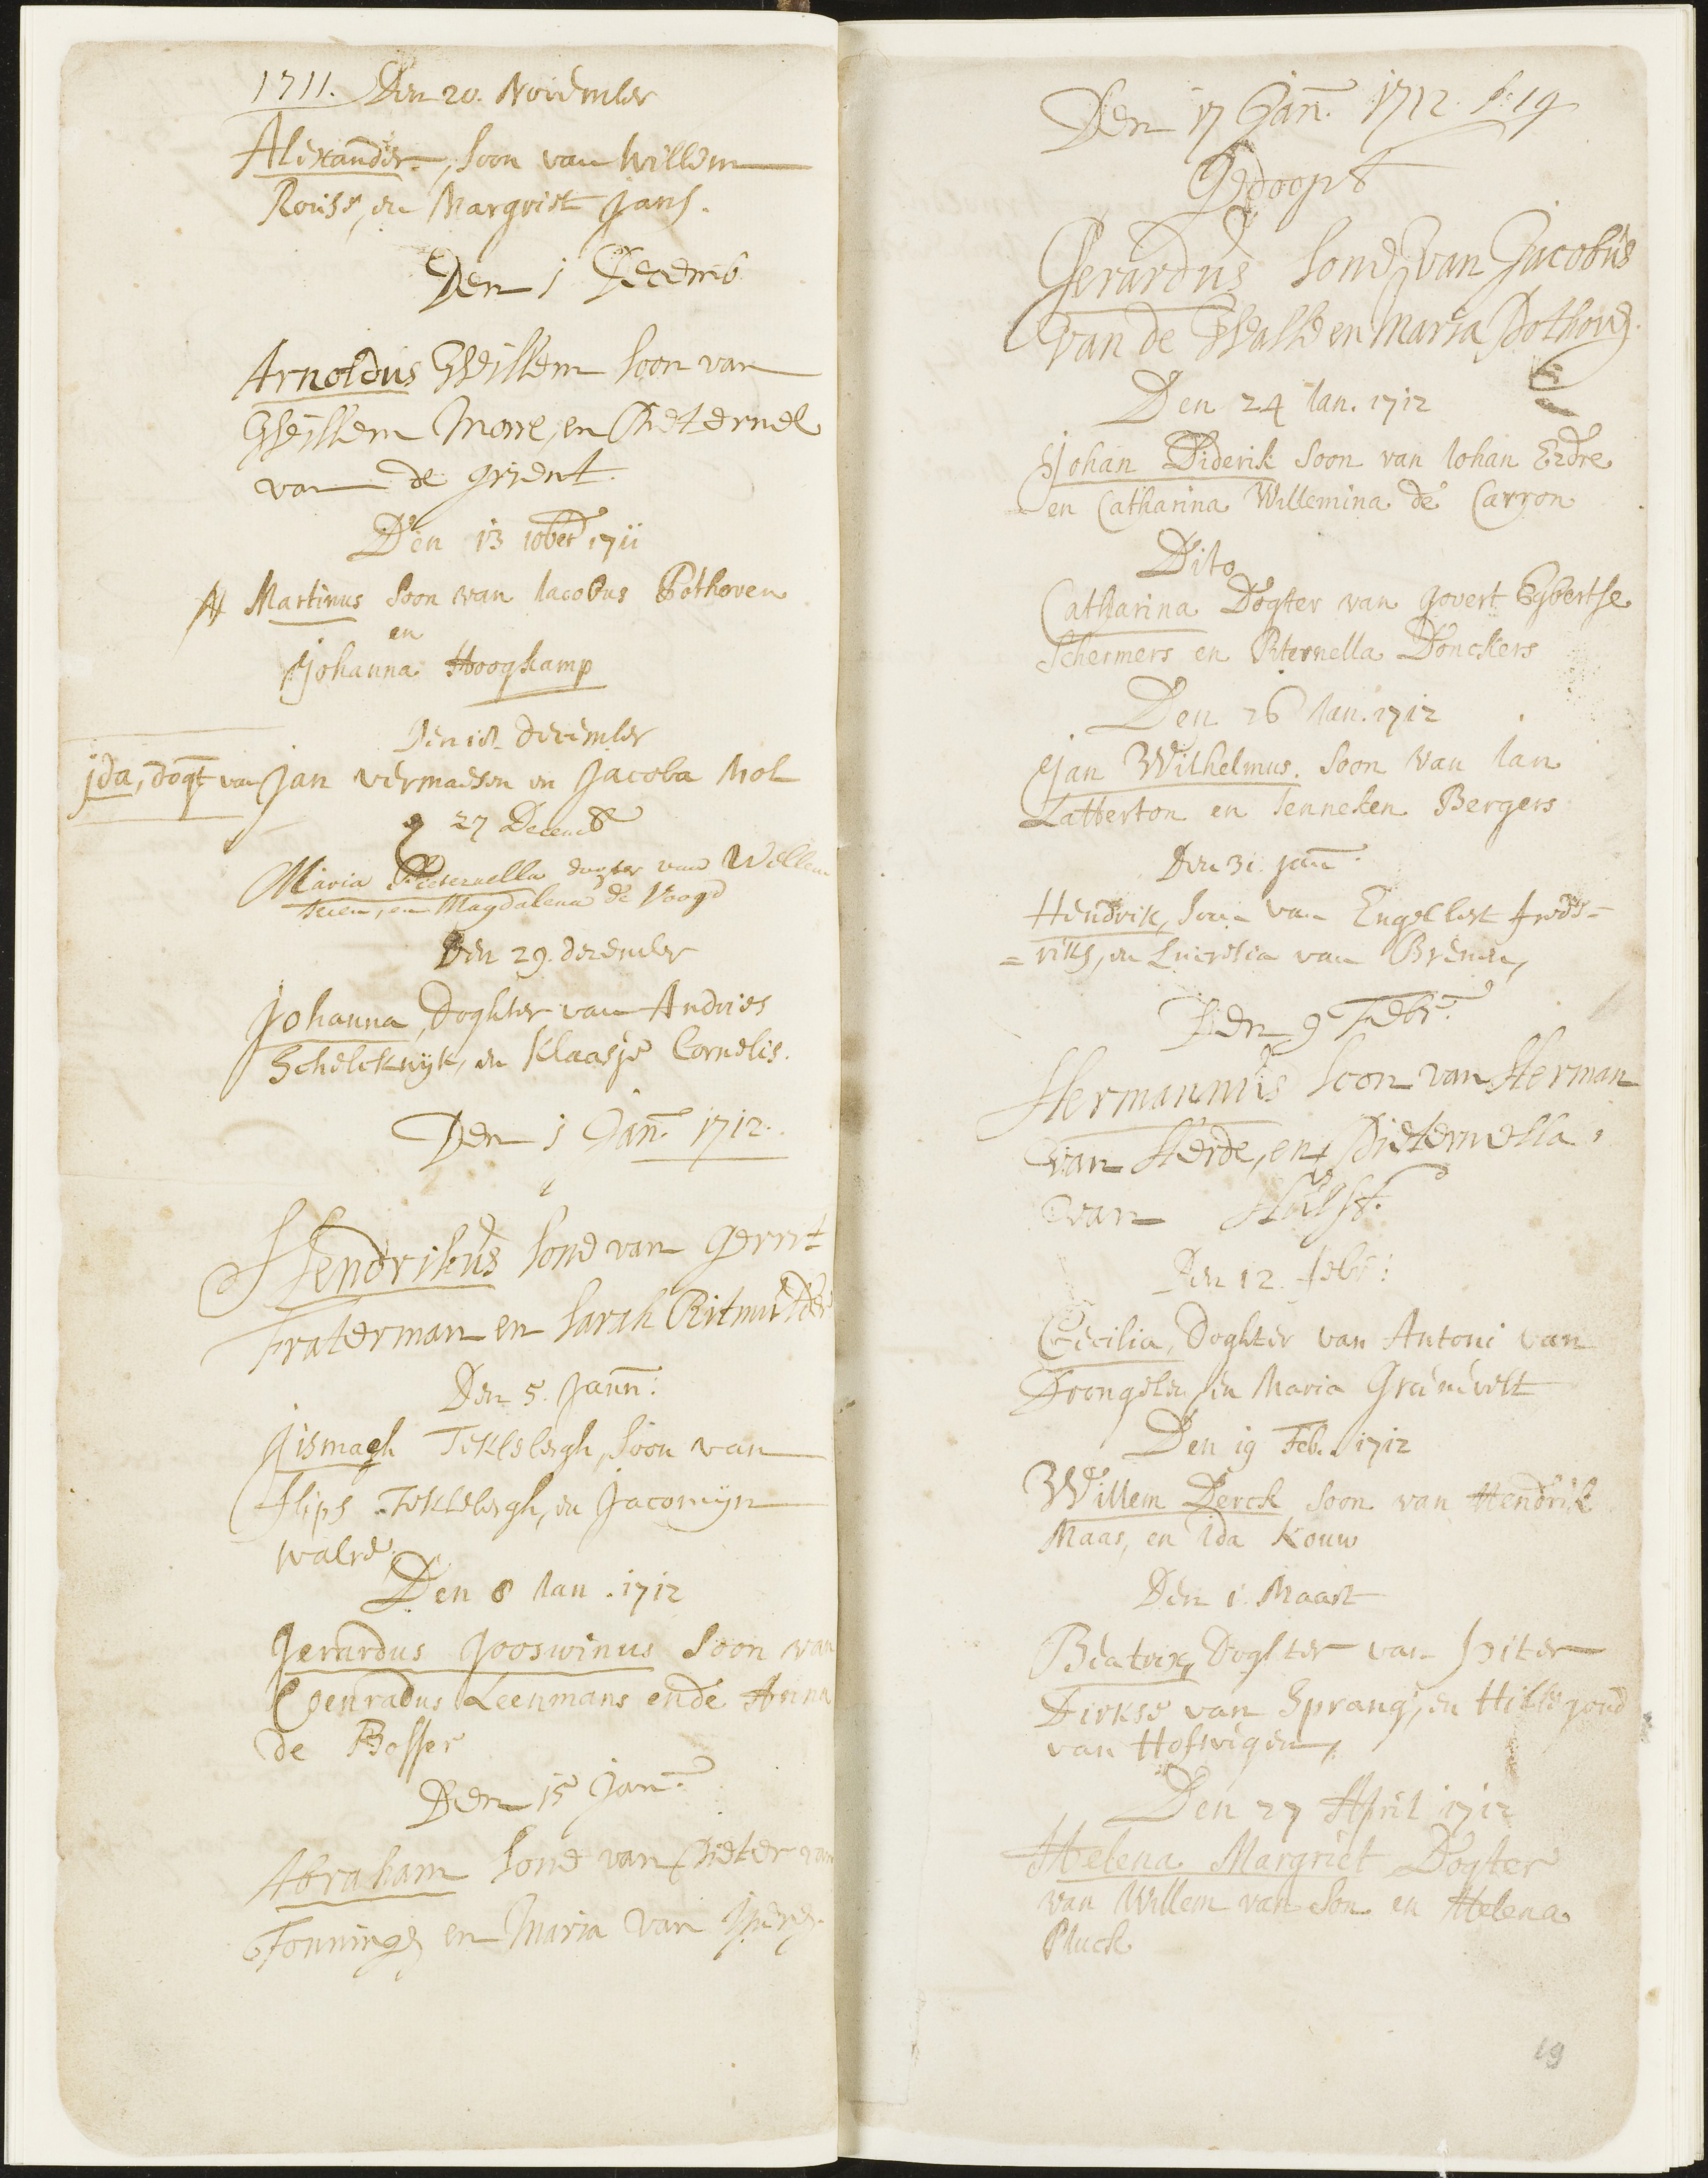 1711. Den 20. November
Alexander, soon van Willem
Rouse, en Margriet Jans.
Den 1 Decemb
Arnoldus Willem soon van
Willem Morre, en Pieternel
van de grient.
Den 13 10ber 1711
Martinus Soon van Iacobus Pothoven
en
Johanna Hooghkamp
Den 18 december
jda, dogt van Jan vermaesen en Jacoba Mol
27 Decemb
Maria Pieternella dogter van Willem
en Magdalena de Voogd
Den 29. december
Johanna, Doghter van Andries
Schelckwijk, en Klaasje Cornelis.
Den 1 Jan. 1712.
Hendrikus sone van gerrit
Fraterman en Sarah Ritmulder
Den 5. Jann:
Jismaeh Teklebergh, Soon van
Flips Teklebergh, en Jacomijn
walre.
Den 8 Ian. 1712
Gerardus Gooswinus Soon van
Coenradus Leenmans ende Anna
de Bosser
Den 15 Jan.
Abraham sone van Pieter van
en Maria van
Den 17 Jan. 1712. 19
Gedoopt
Gerardus sone van Jacobus
van de Walle en Maria Pothove.
Den 24 Ian. 1712
Johan Diderik Soon van Iohan
en Catharina Willemina de Carron
Dito
Catharina Dogter van Govert Egbertse
Schermers en Piternella Donckers
Den 26 Ian. 1712
Jan Wilhelmus. Soon van Ian
Latterton en Ienneken Bergers
Den 31. jan.
Hendrik, Soon van Engelbert fredr=
=riks, en Lucresia van Bremen,
Den 9 Febr.
Hermannus soon van Herman
van Herde, en Pieternella
van Hulst.
Den 12. febr:
Cecilia, Doghter van Antoni van
Drongelen en Maria
Den 19 Feb. 1712
Willem Derck Soon van Hendrik
Maas, en Ida Kouw
Den 1. Maart
Beatrix, Doghter van Piter
Dirkse van Sprang, en Hillegond
van Hofwegen,
Den 27 April 1712
Helena Margriet Dogter
van Willem van Son en Helena
Pluck
19